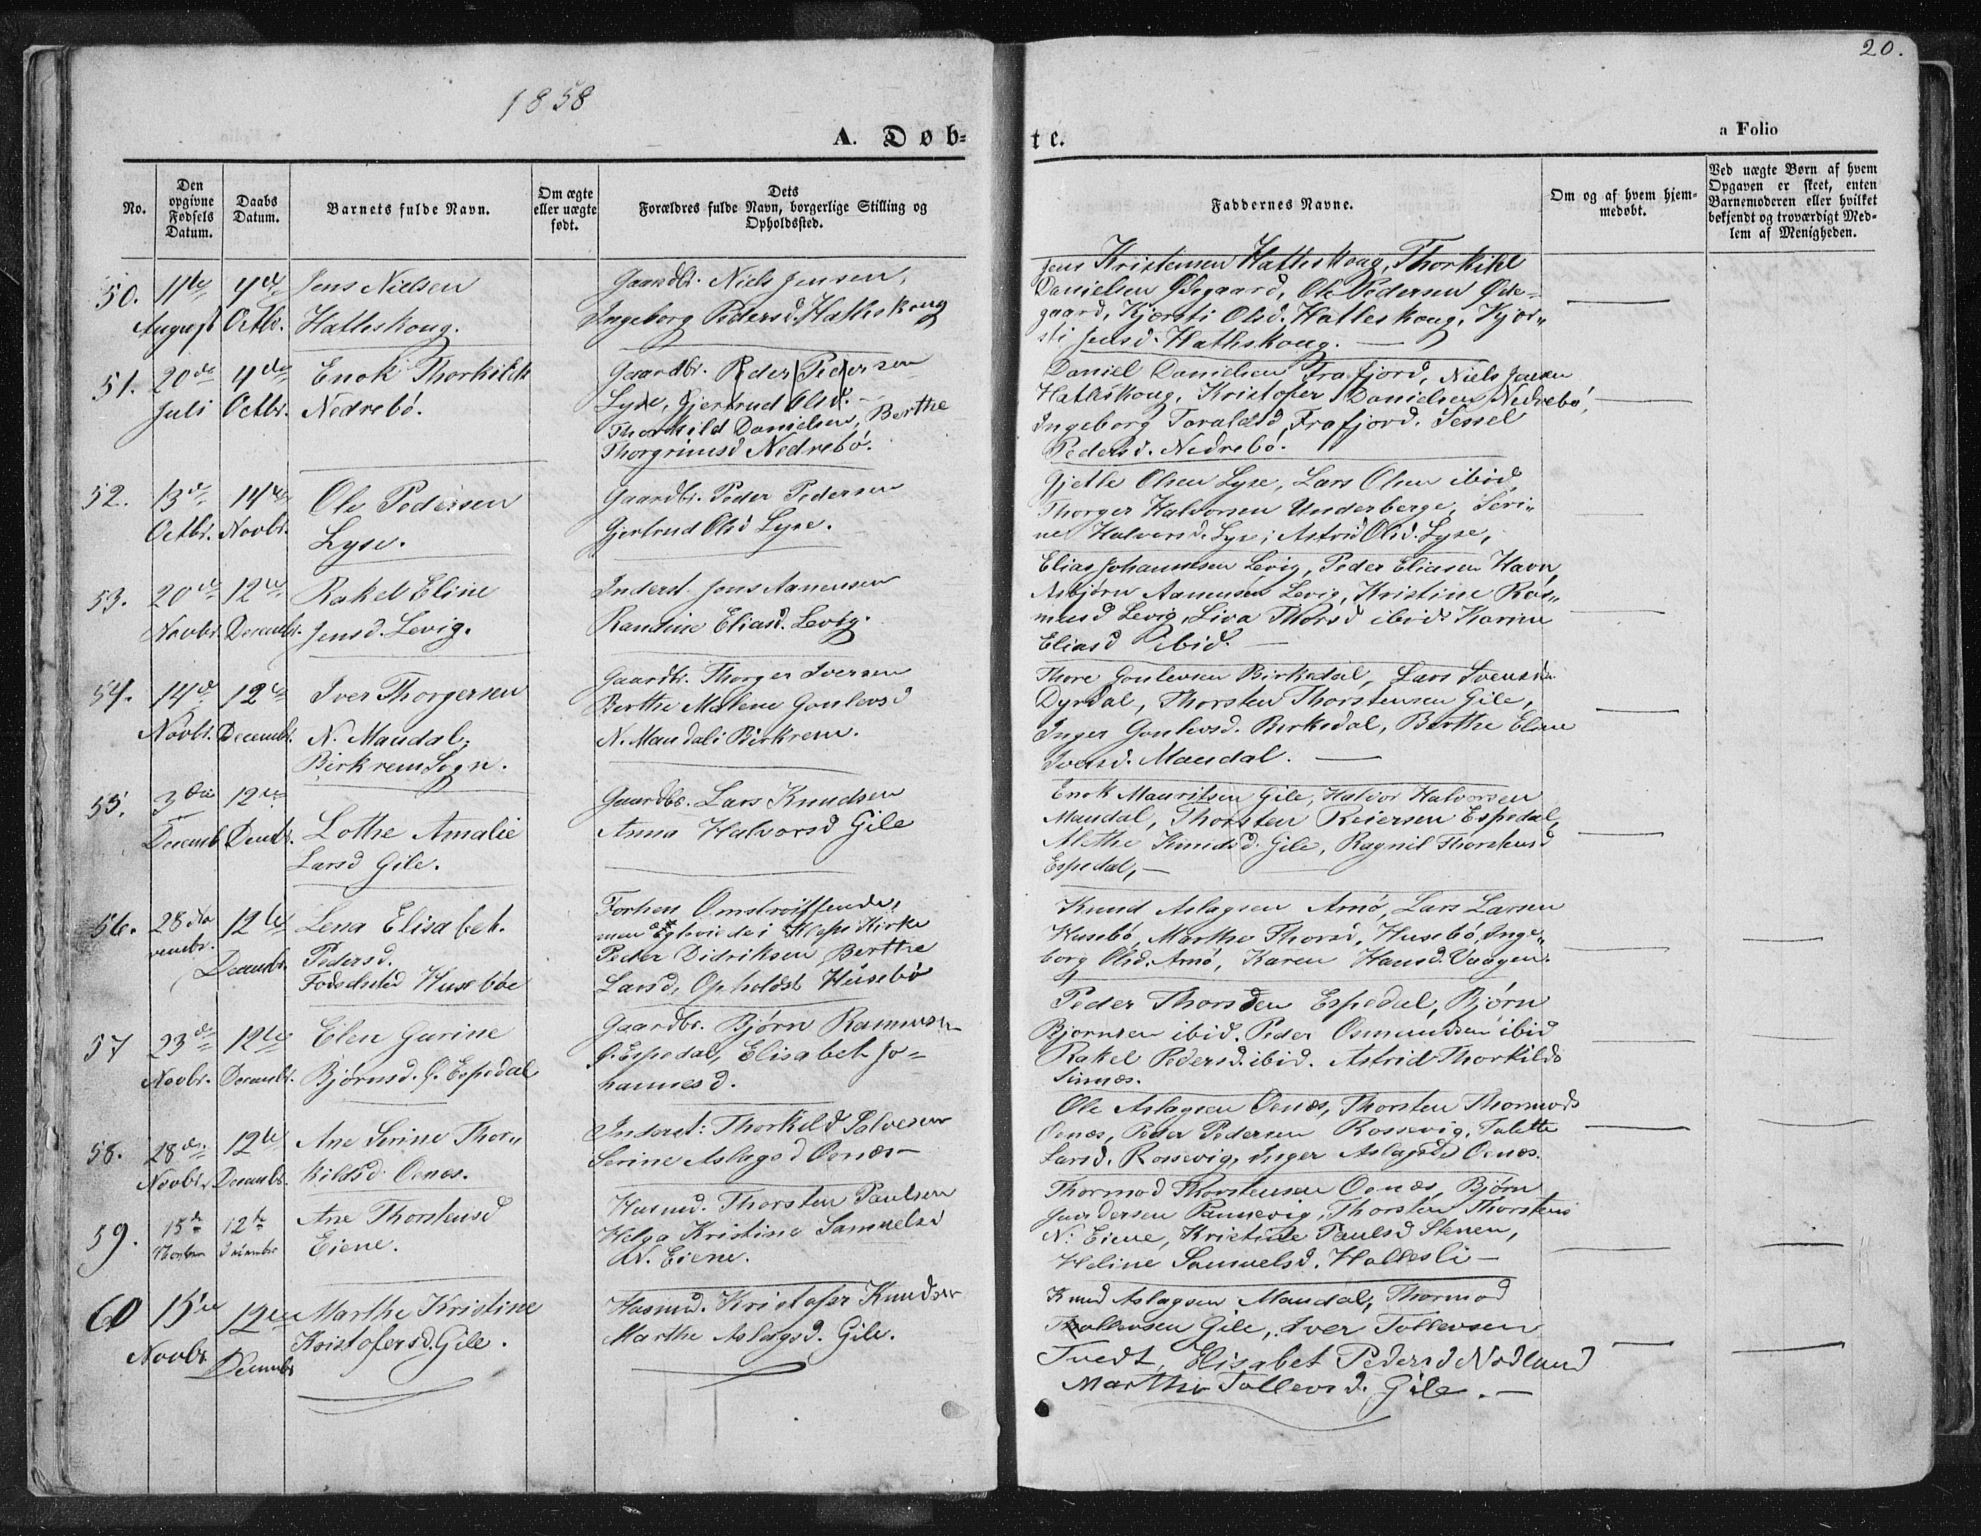 20.
1858
A. Døb-
te.
a Folio
No.
Den opgivne Fødsels Datum.
Daabs Datum.
Barnets fulde Navn.
Om ægte eller uægte født.
Dets Forældres fulde Navn, borgerlige Stilling og Opholdssted.
Faddernes Navne.
Om og af hvem hjemmedøbt.
Ved uægte Børn af hvem Opgaven er skeet, enten Barnemoderen eller hvilket bekjendt og troværdigt Medlem af Menigheden.
50.
11te August
4de Octbr.
Jens Nielsen
Hatleskoug.
Gaardbr. Niels Jensen,
Ingeborg Pedersd. Hatleskoug
Jens Kristensen Hatleskoug, Thorkild
Danielsen Ødegaard, Ole Pedersen Øde-
gaard, Kjersti Olsd. Hatleskoug, Kjer-
sti Jensd. Hatleskoug.
51.
20de Juli
4de Octbr.
Enok Thorkilds
Nedrebö.
Gaardbr. Peder Pedersen
Lyse, Gjertrud Olsd.
Thorkild Danielsen, Berthe
Thorgrimsd Nedrebö.
Daniel Danielsen Frafjord, Niels Jensen
Hatleskoug, Kristofer Danielsen Nedrebö,
Ingeborg Toraldsd, Frafjord. Sessel
Pedersd. Nedrebö.
52.
13de Octbr.
14de Novbr.
Ole Pedersen
Lyse.
Gaardbr. Peder Pedersen
Gjertrud Olsd Lyse.
Gjetle Olsen Lyse, Lars Olsen ibid,
Thorger Halvorsen Underberge, Seri-
ne Halvorsd. Lyse, Astrid Olsd. Lyse,
53.
20de Novbr.
12te Decembr.
Rakel Eline
Jensd. Levig.
Inderst. Jens Aamunsen
Randine Eliasd. Levig.
Elias Johannesen Levig, Peder Eliasen Havn,
Asbjørn Aamunsen Levig, Kristine Ras-
musd Levig, Liva Thorsd ibid. Karine
Eliasd ibid.
54.
14de Novbr.
12te Decembr.
Iver Thorgersen
N. Maudal,
Birkrem Sogn.
Gaardbr. Thorger Iversen
Berthe Malene Gonlevsd
N. Maudal i Birkrem.
Thore Gonlevsen Birkedal, Lars Svensen
Dyrdal, Thorsten Thorstensen Gile,
Inger Gonlevsd. Birkedal, Berthe Eline
Iversd. Maudal.
55.
3die Decemb.
12te Decmbr.
Lothe Amalie
Larsd Gile.
Gaardbr. Lars Knudsen
Anna Halvorsd Gile
Enok Mauritsen Gile, Halvor Halvorsen
Maudal, Thorsten Reiersen Espedal,
Alethe Knudsd. Gile, Ragnil Thorstensd
Espedal,
56.
28 November.
12te Decembr.
Lena Elisabet.
Pedersd.
Fødested Husebøe
Forhen Omstreiffende,
men egteviede i Kleps Kirke
Peder Didriksen Berthe
Larsd, Opholdst Husebö
Knud Aslagsen Arnö, Lars Larsen
Husebö, Marthe Thorsd, Husebö, Inge-
borg Olsd. Arnö, Karen Hansd. Vaagen.
57
23de Novbr.
12te Decembr.
Elen Gurine
Bjørnsd. G. Espedal
Gaardbr. Bjørn Rasmusen
G. Espedal, Elisabet Jo-
hannesd.
Peder Thorsden Espedal, Bjørn
Bjornsen ibid. Peder Osmundsen ibid
Rakel Pedersd. ibid. Astrid Thorkilds
Sinnæs.
58.
28de Novbr.
12te Decembr.
Ane Serine Thor-
kildsd Oenæs.
Inderst: Thorkild Salvesen
Serine Aslagsd Oenæs
Ole Aslagsen Oenæs, Thorsten Thormods
Oenæs, Peder Pedersen Rossevig, Talette
Larsd. Rossevig, Inger Aslagsd Oenæs.
59.
15de
12te December
Ane Thorstensd
Eiene.
Husmd. Thorsten Paulsen
Helga Kristine Samuelsd
N. Eiene.
Thormod Thorstensen Oenæs, Bjørn
Gundersen Rannevig, Thorsten Thorstens
N. Eiene, Kristine Paulsd Stenen,
Heline Samuelsd. Hallesli
60
15de Novbr.
12te Decembr
Marthe Kristine
Kristofersd. Gile.
Husmd. Kristofer Knudsen
Marthe Aslagsd. Gile.
Knud Aslagsen Maudal, Thormod
Thollevsen Gile, Iver Tollevsen
Tvedt, Elisabet Pedersd Nodland
Marthe Tollevsd. Gile.